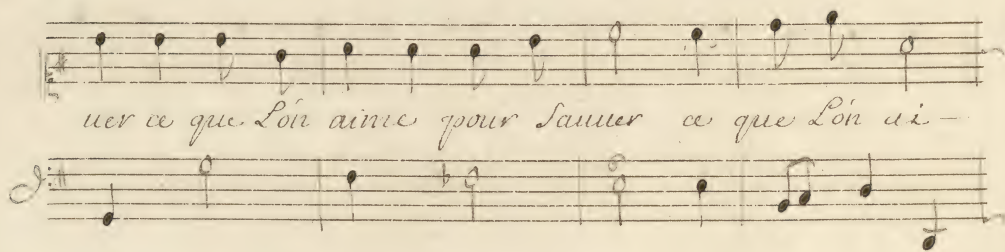 uer ce que L'on aime pour Sauuer ce que L'on ai-